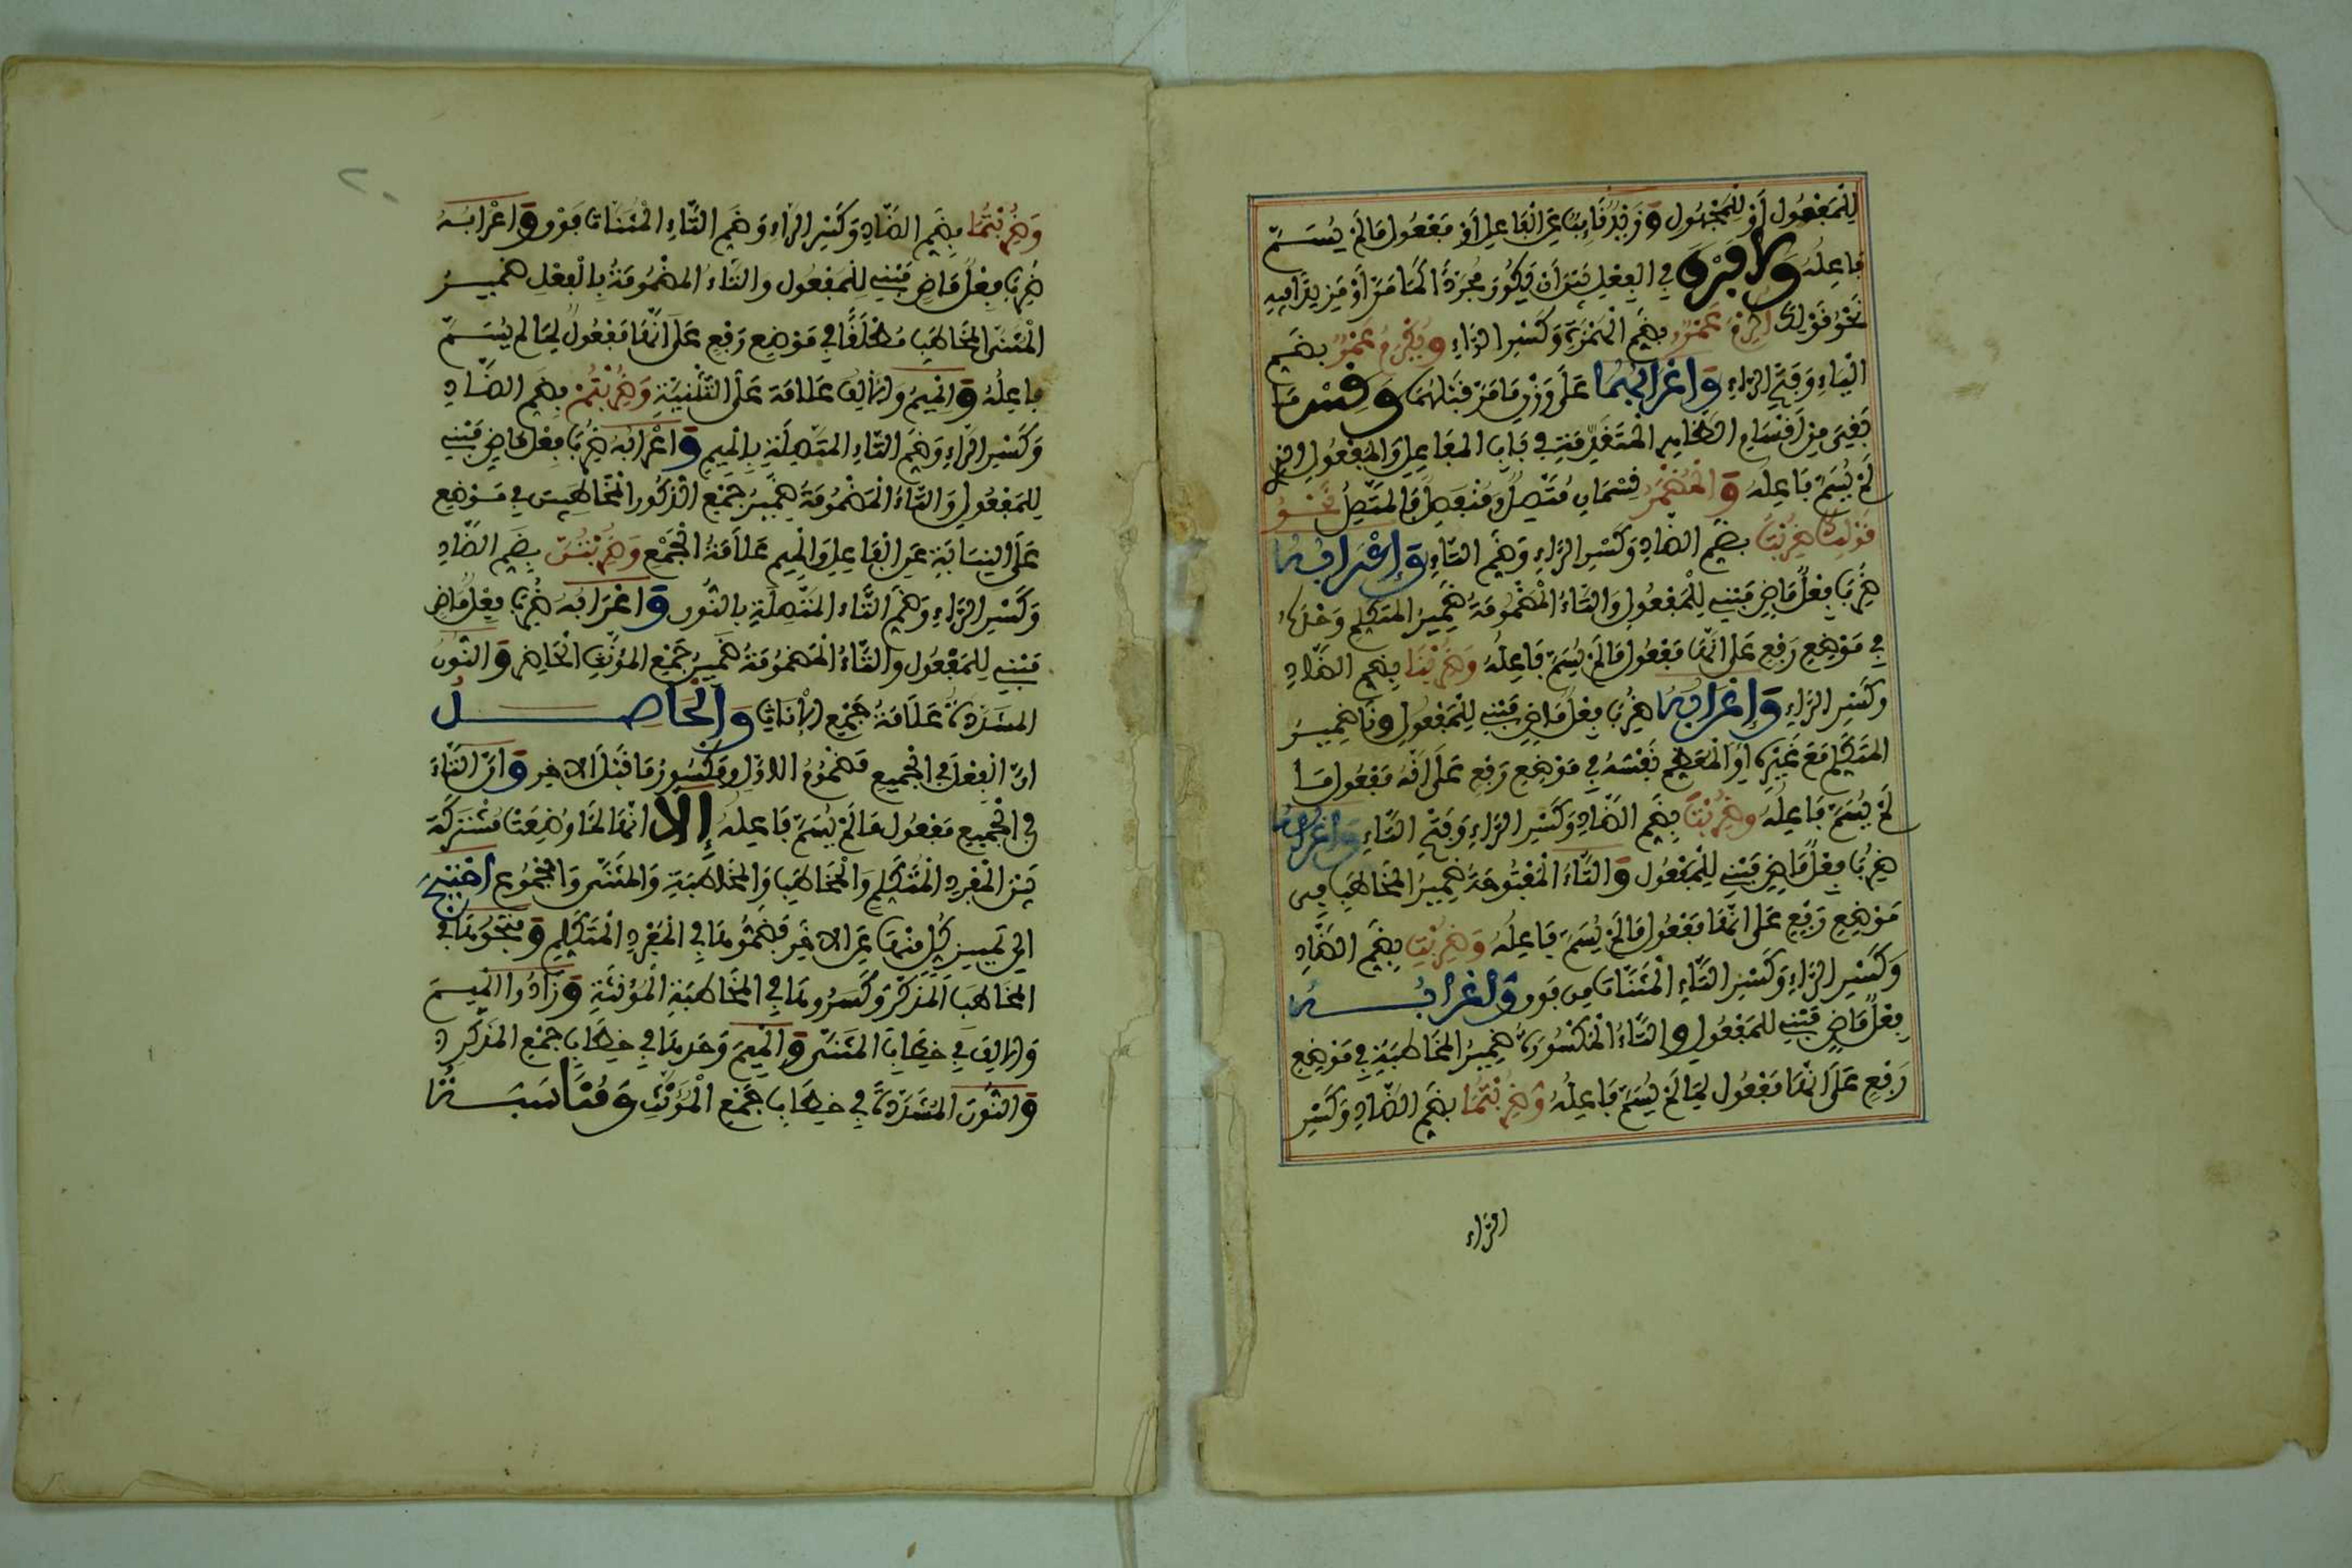 لِلْمَفْعُولِ أَوْ لِلْمَجْهُولِ وَزَيْدٌ نَائِبٌ عَنِ الْفَاعِلِ أَوْ مَفْعُولُ مَا لَمْ يُسَمَّ
فَاعِلُهُ وَلَا فَرْقَ فِي الْفِعْلِ بَيْنَ أَنْ يَكُونَ مُجَرَّدًا كَمَا مَرَّ أَوْ مَزِيدًا فِيهِ
نَحْوُ قَوْلِكَ أُكْرِمَ عَمْرٌو بِضَمِّ الْهَمْزَةِ وَكَسْرِ الرَّاءِ وَيُكْرَمُ عَمْرٌو بِضَمِّ
الْيَاءِ وَفَتْحِ الرَّاءِ وَإِعْرَابُهُمَا عَلَى وَزْنِ مَا مَرَّ قَبْلَهُمَا وَقِسْ مَا
بَقِيَ مِنْ أَقْسَامِ الظَّاهِرِ الْمُتَقَدِّمَةِ فِي بَابِ الْفَاعِلِ وَالْمَفْعُولِ الَّذِي
لَمْ يُسَمَّ فَاعِلُهُ وَالْمُضْمَرُ قِسْمَانِ مُتَّصِلٌ وَمُنْفَصِلٌ فَالْمُتَّصِلُ نَحْوُ
قَوْلِكَ ضُرِبْتُ بِضَمِّ الضَّادِ وَكَسْرِ الرَّاءِ وَضَمِّ التَّاءِ وَإِعْرَابُهُ
ضُرِبَ فِعْلٌ مَاضٍ مَبْنِيٌّ لِلْمَفْعُولِ وَالتَّاءُ الْمَضْمُومَةُ ضَمِيرُ الْمُتَكَلِّمِ وَحْدَهُ
فِي مَوْضِعِ رَفْعٍ عَلَى أَنَّهَا مَفْعُولُ مَا لَمْ يُسَمَّ فَاعِلُهُ وَضُرِبْنَا بِضَمِّ الضَّادِ
وَكَسْرِ الرَّاءِ وَإِعْرَابُهُ ضُرِبَ فِعْلٌ مَاضٍ مَبْنِيٌّ لِلْمَفْعُولِ وَنَا ضَمِيرُ
الْمُتَكَلِّمِ مَعَ غَيْرِهِ أَوِ الْمُعَظِّمِ نَفْسَهُ فِي مَوْضِعِ رَفْعٍ عَلَى أَنَّهُ مَفْعُولُ مَا
لَمْ يُسَمَّ فَاعِلُهُ وَضُرِبْتَ بِضَمِّ الضَّادِ وَكَسْرِ الرَّاءِ وَفَتْحِ التَّاءِ وَإِعْرَابُهُ
ضُرِبَ فِعْلٌ مَاضٍ مَبْنِيٌّ لِلْمَفْعُولِ وَالتَّاءُ الْمَفْتُوحَةُ ضَمِيرُ الْمُخَاطَبِ فِي
مَوْضِعِ رَفْعٍ عَلَى أَنَّهَا مَفْعُولُ مَا لَمْ يُسَمَّ فَاعِلُهُ وَضُرِبْتِ بِضَمِّ الضَّادِ
وَكَسْرِ الرَّاءِ وَكَسْرِ التَّاءِ الْمُثَنَّاتِ مِن فَوْق وَإِعْرَابُهُ
فِعْلٌ مَاضٍ مَبْنِيٌّ لِلْمَفْعُولِ وَالتَّاءُ الْمَكْسُورَةُ ضَمِيرُ الْمُخَاطَبَةِ فِي مَوْضِعِ
رَفْعٍ عَلَى أَنَّهَا مَفْعُول لِمَا لَمْ يُسَمَّ فَاعِلُهُ وَضُرِبْتُمَا بِضَمِّ الضَّادِ وَكَسْرِ
الرَّاءِ
وَضُرِبْتُمَا بِضَمِّ الضَّادِ وَكَسْرِ الرَّاءِ وَضَمِّ التَّاءِ الْمُثَنَّاتِ فَوْق وَإِعْرَابُهُ
ضُرِبَ فِعْلٌ مَاضٍ مَبْنِيٌّ لِلْمَفْعُول وَالتَّاءُ الْمَضْمُومَةُ بِالْفِعْلِ ضَمِيرُ
الْمُثَنَّى الْمُخَاطَبِ مُطْلَقًا فِي مَوْضِعِ رَفْعٍ عَلَى أَنَّهَا مَفْعُولٌ لِمَا لَمْ يُسَمَّ
فَاعِلُهُ وَالْمِيمُ وَالْأَلِفُ عَلَامَة عَلَى التَّثْنِيَةِ وَضُرِبْتُمْ بِضَمِّ الضَّادِ
وَكَسْرِ الرَّاءِ وَضَمِّ التَّاءِ الْمُتَّصِلَةِ بِالْمِيمِ وَإِعْرَابُهُ ضُرِبَ فِعْلٌ مَاضٍ مَبْنِيٌّ
لِلْمَفْعُولِ وَالتَّاءُ الْمَضْمُومَةُ ضَمِيرُ جَمْعِ الذُّكُورِ الْمُخَاطَبِينَ فِي مَوْضِعِ
عَلَى النِّيَابَةِ عَنِ الْفَاعِلِ وَالْمِيم عَلَامَةُ الْجَمْعِ وَضُرِبْتُنَّ بِضَمِّ الضَّادِ
وَكَسْرِ الرَّاءِ وَضَمِّ التَّاءِ الْمُتَّصِلَةِ بِالنُّون وَإِعْرَابُهُ ضُرِبَ فِعْلٌ مَاضٍ
مَبْنِيٌّ لِلْمَفْعُول وَالتَّاءُ الْمَضْمُومَةُ ضَمِيرُ جَمْعِ الْمُؤَنَّثِ الْحَاضِر وَالنُّونُ
الْمُشَدَّدَةُ عَلَامَةُ جَمْعِ الْإِنَاثِ وَالْحَاصِلُ
أَنَّ الْفِعْلَ فِي الْجَمِيعِ مَضْمُومُ الْأَوَّلِ وَمَكْسُورُ مَا قَبْلَ الْآخِرِ وَأَنَّ التَّاءَ
فِي الْجَمِيعِ مَفْعُول مَا لَمْ يُسَمَّ فَاعِلُهُ إِلَّا أَنَّهَا لَمَّا وُضِعَتْ مُشْتَرَكَةً
بَيْنَ الْمُفْرَدِ الْمُتَكَلِّمِ وَالْمُخَاطَبِ وَالْمُخَاطَبَةِ وَالْمُثَنَّى وَالْمَجْمُوعِ احْتِيجَ
إِلَى تَمْيِيزِ كُلٍّ مِنْهَا عَنِ الْآخَرِ فَضَمُّوهَا فِي الْمُفْرَدِ الْمُتَكَلِّمِ وَفَتَحُوهَا فِي
الْمُخَاطَبِ الْمُذَكَّرِ وَكَسَرُوهَا فِي الْمُخَاطَبَةِ الْمُؤَنَّثَةِ وَزَادُوا الْمِيمَ
وَالْأَلِفَ فِي خِطَابِ الْمُثَنَّى وَالْمِيمَ وَحْدَهَا فِي خِطَابِ جَمْعِ الْمُذَكَّرِ
وَالنُّونَ الْمُشَدَّدَةَ فِي خِطَابِ جَمْعِ الْمُؤَنَّثِ وَمُنَاسَبَةُ